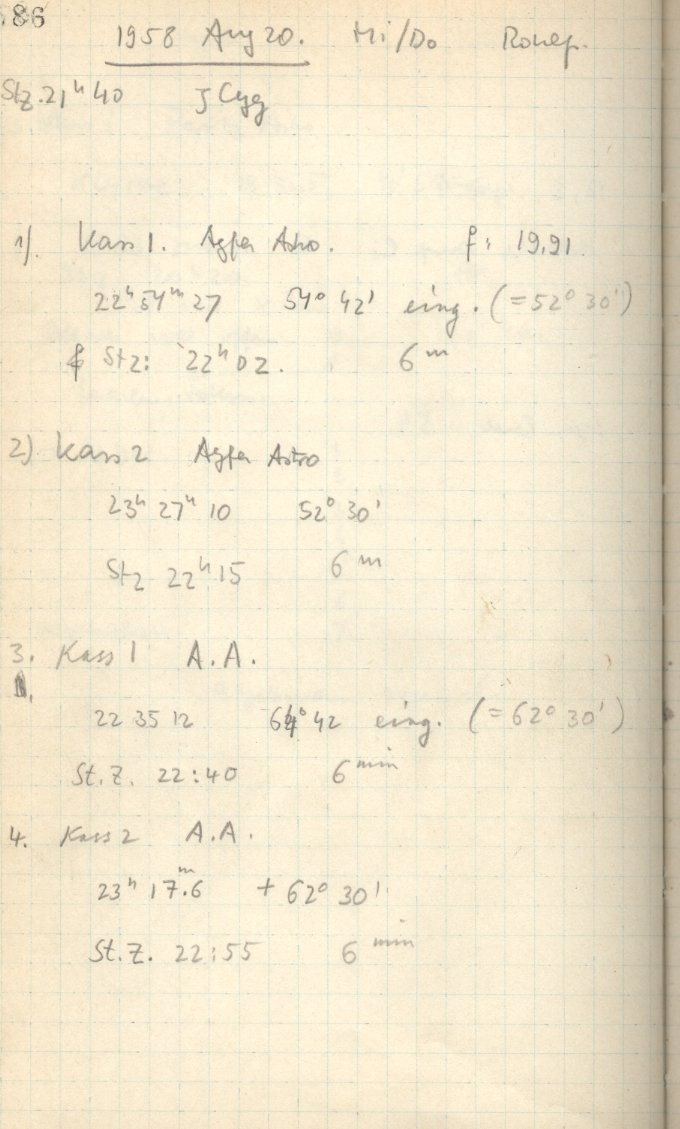 86
1958 Aug 20. Mi/Do
Stz. 21ʰ 40 ζ Cyg
1). Kass 1. Agfa Astro. f: 19,91
22ʰ 54ᵐ 27 54° 42' eing. (=52° 30')
Stz: 22ʰ 02. 6ᵐ
2) Kass 2 Agfa Astro
23ʰ 27ᵐ 10 52° 30'
Stz 22ʰ 15 6ᵐ
3. Kass 1 A.A.
22 35 12 64° 42 eing. (=62° 30')
St.Z. 22:40 6ᵐⁱⁿ
4. Kass 2 A.A.
23ʰ 17.ᵐ6 + 62° 30'
St.Z. 22:55 6ᵐⁱⁿ